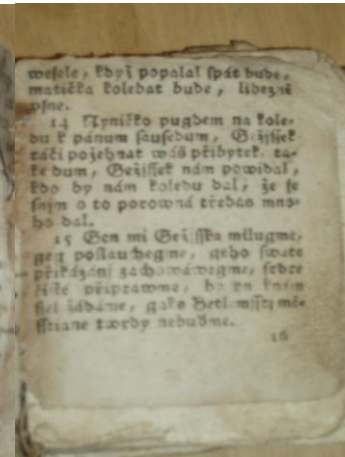 wesele, když popalal spát bude,
matička kolebat bude, libezně
vsne.
14 Nyničko pugdem na kole-
du k pánum sausedum, Gežissek
ráči požehnat wás přibytek, ta-
ke dum, Gežissek nám powidal,
kdo by nám koledu dal, že se
snim o to porowná třebas mno-
ho dal.
15 Gen mi Gežisska milugme,
geg poslauchegme, geho swate
přikázáni zachowáwegme, srdce
čisté připrawme, by on knám
ssel žádáme, gako Betlemsstj mě-
sstiane twrdy nebuďme.
16